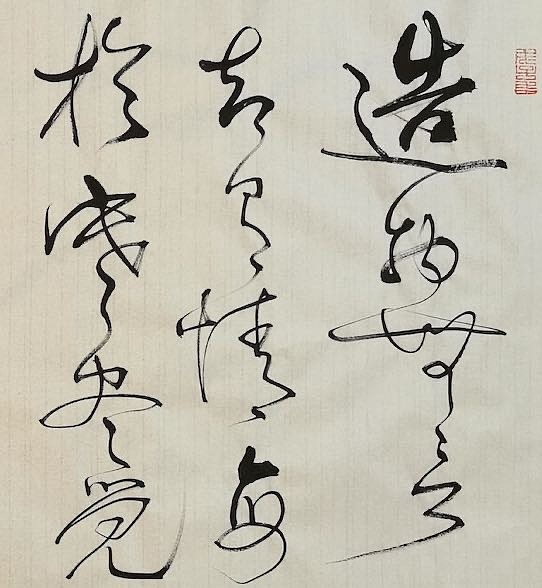 造物無言
却有情每
於寒尽觉